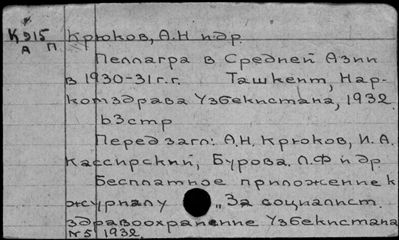 К 915 Крюков, А.Н и др.
А П
Пеллагра в Средней Азии
в 1930-31 г.г. Ташкент, Нар-
комздрава Узбекистана, 1932.
63 стр
Перед загл: А.Н. Крюков, И.А.
Кассирский, Бурова. Л.Ф и др
Бесплатное приложение к
журналу „За социалист.
здравоохранение Узбекистана
№5 1932.